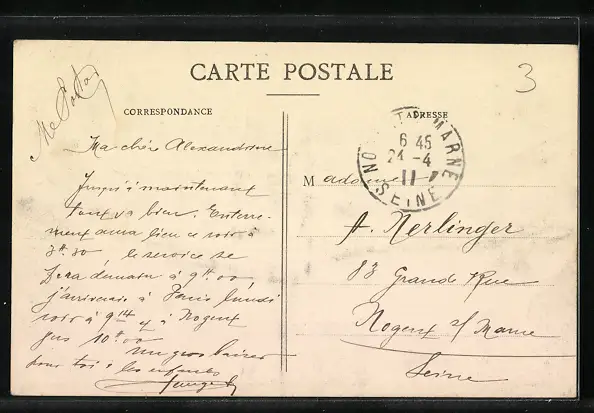 CARTE POSTALE
3
CORRESPONDANCE
ADRESSE
Ma chère Alexandrine
Jusqu'à maintenant
tout va bien. Enterre-
ment aura lieu ce soir à
3h 30, le service se
fera demain à 9h 00,
j'arriverai à Paris lundi
soir à 9h et à Nogent
10h 00
un gros baiser
pour toi & les enfants
MARNE
6 45
24 -4
11
SEINE
Madame
A. Nerlinger
83 Grande Rue
Nogent s/ Marne
Seine